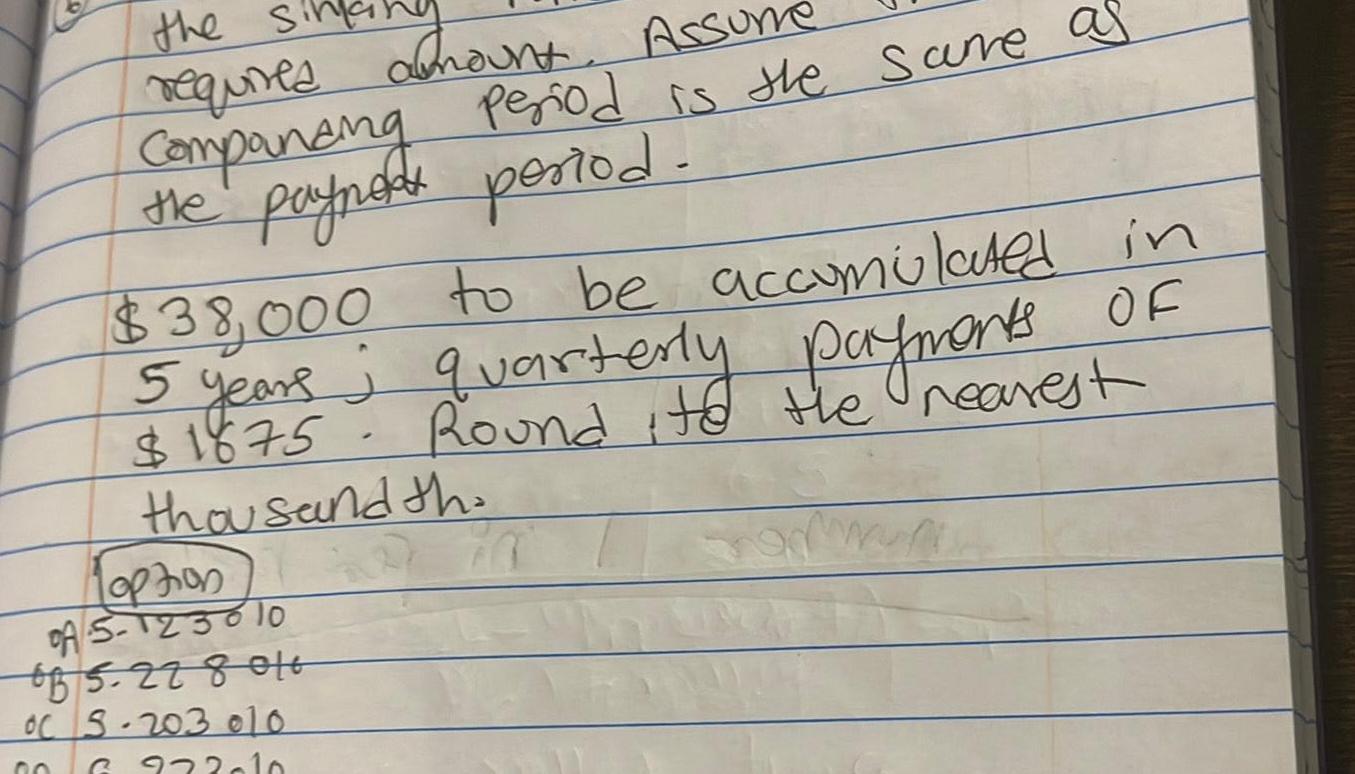 the sinking
requires amount. Assume
Compounding period is the same as
the payment period.
$38,000 to be accumulated in
5 years; quarterly payments OF
$1675. Round to the nearest
thousandth.
option
A 5.123%
B 5.228%
C 5.203%